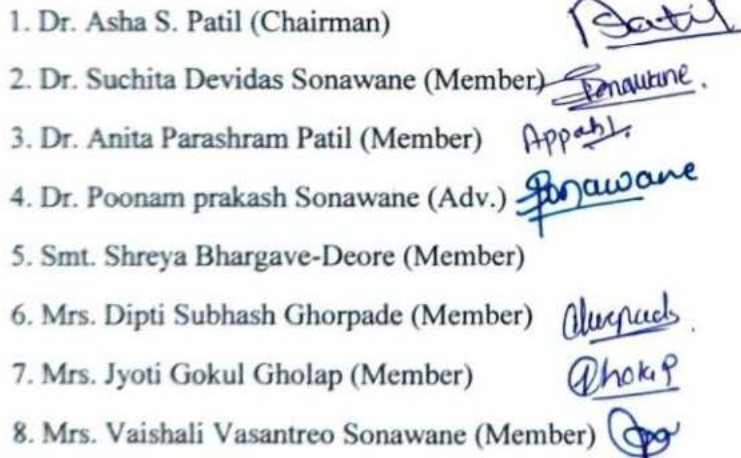 1. Dr. Asha S. Patil (Chairman) Patil
2. Dr. Suchita Devidas Sonawane (Member) Sonawane.
3. Dr. Anita Parashram Patil (Member)
4. Dr. Poonam prakash Sonawane (Adv.) Sonawane
5. Smt. Shreya Bhargave-Deore (Member)
6. Mrs. Dipti Subhash Ghorpade (Member)
7. Mrs. Jyoti Gokul Gholap (Member)
8. Mrs. Vaishali Vasantreo Sonawane (Member)